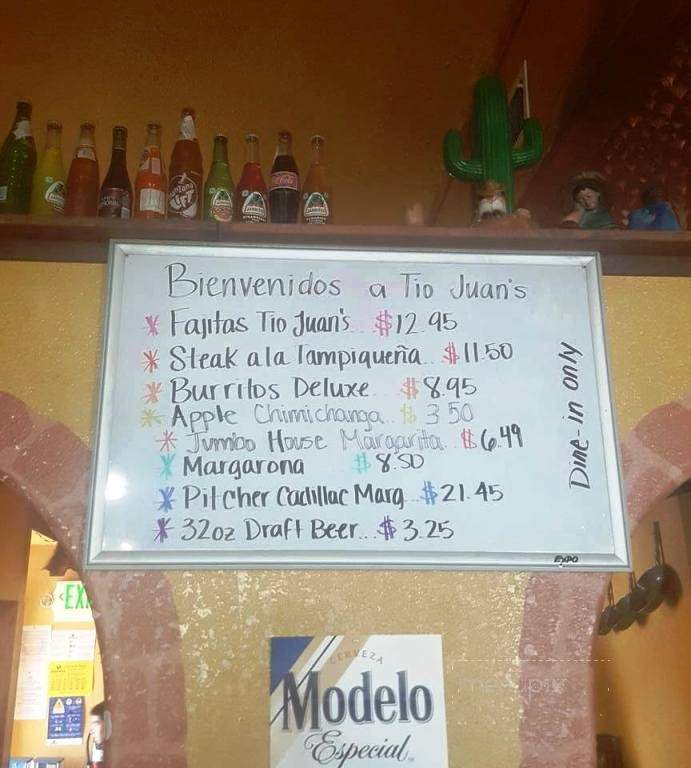 Bienvenidos a Tio Juan's
* Fajitas Tio Juan's.. $12.95
* Steak a la Tampiqueña.. $11.50
* Burritos Deluxe $8.95
* Apple Chimichanga.. $3.50
* Jumbo House Margarita.. $6.49
* Margarona $8.50
* Pitcher Cadillac Marg.. $21.45
* 32oz Draft Beer... $3.25
Dine-in only
EXPO
CERVEZA
Modelo
Especial
LIFT
Coca-Cola